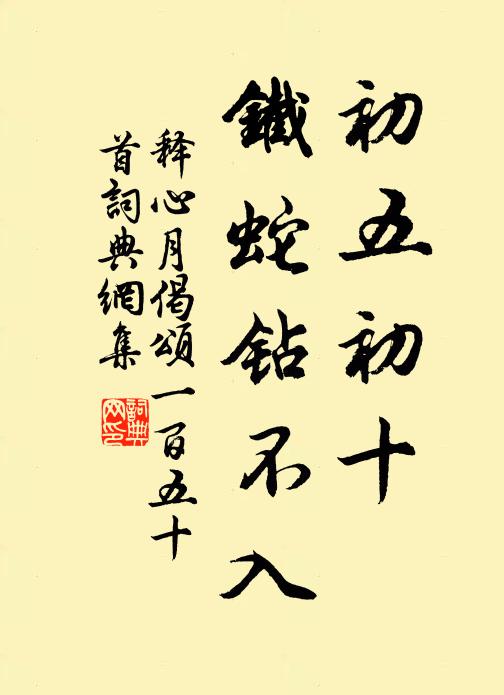 初五初十
鐵蛇钻不入
释心月偈頌一百五十
首詞典網集
詞典网印